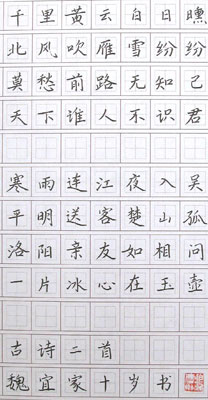 千里黄云白日曛
北风吹雁雪纷纷
莫愁前路无知己
天下谁人不识君
寒雨连江夜入吴
平明送客楚山孤
洛阳亲友如相问
一片冰心在玉壶
古诗二首
魏宜家十岁书